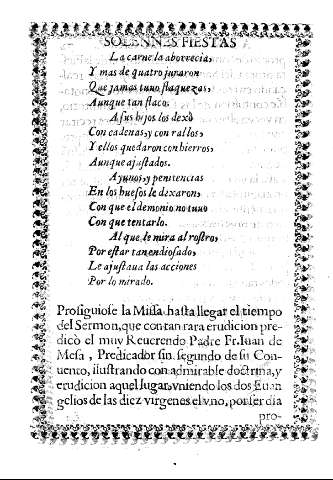 SOLENNES FIESTAS
La carne la aborrecia,
Y mas de quatro juraron
Que jamas tuuo flaquezas,
Aunque tan flaco.
A sus hijos los dexò
Con cadenas, y con rallos,
Y ellos quedaron con hierros,
Aunque ajustados.
Ayunos, y penitencias
En los huesos le dexaron,
Con que el demonio no tuuo
Con que tentarlo.
Al que le mira al rostro,
Por estar tan endiosado,
Le ajustaua las acciones
Por lo mirado.
Prosiguiose la Missa hasta llegar el tiempo
del Sermon, que con tan rara erudicion pre-
dicò el muy Reuerendo Padre Fr. Iuan de
Mesa, Predicador sin segundo de su Con-
uento, ilustrando con admirable doctrina, y
erudicion aquel lugar, vniendo los dos Euan
gelios de las diez virgenes el vno, por ser dia
pro-